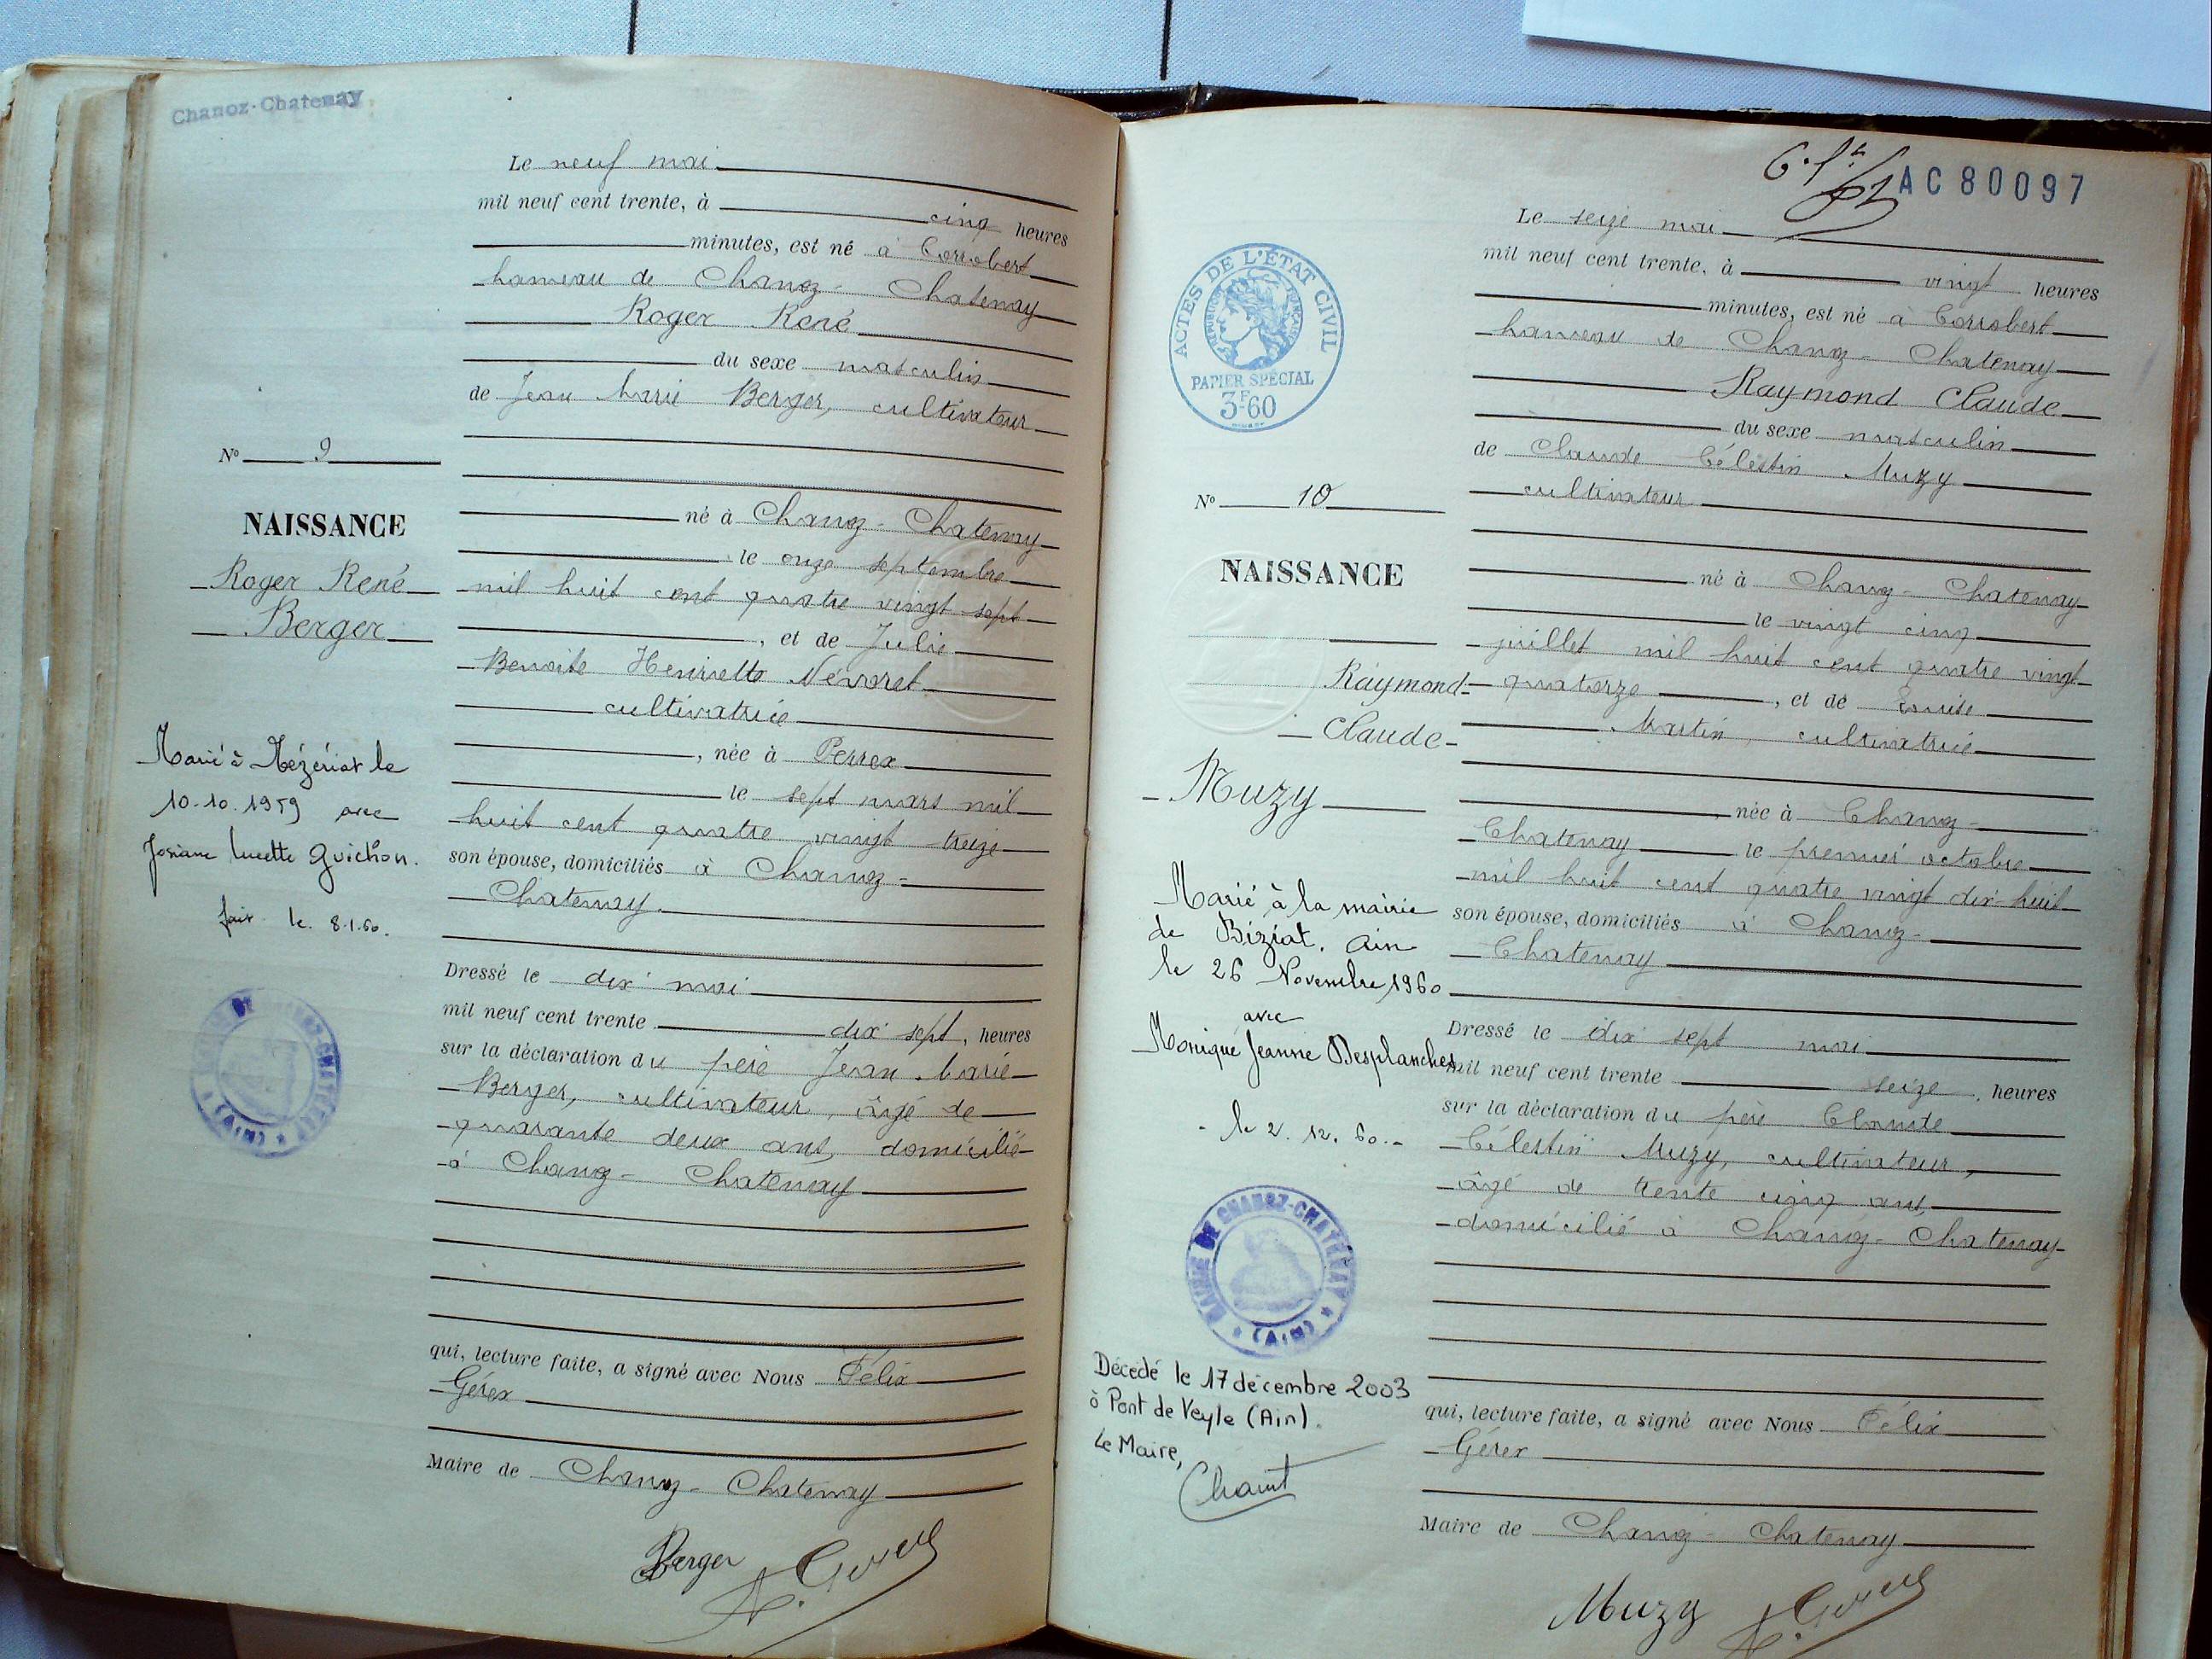 Chanoz-Chatenay
Le neuf mai
mil neuf cent trente, à cinq heures
minutes, est né à Corrobert
hameau de Chanoz-Chatenay
Roger René
du sexe masculin
de Jean Marie Berger, cultivateur
né à Chanoz-Chatenay
le onze septembre
mil huit cent quatre vingt sept
, et de Julie
Benoite Henriette Nevoret
cultivatrice
, née à Perrex
le sept mars mil
huit cent quatre vingt treize
son épouse, domiciliés à Chanoz-
Chatenay.
Dressé le dix mai
mil neuf cent trente dix sept, heures
sur la déclaration du père Jean Marie
Berger, cultivateur, âgé de
quarante deux ans, domicilié
à Chanoz-Chatenay
qui, lecture faite, a signé avec Nous Félix
Gérex
Maire de Chanoz-Chatenay
Berger
Nº 9
NAISSANCE
Roger René
Berger
Marié à Mézériat le
10.10.1959 avec
Josiane Lucette Guichon.
fait le 8.1.60.
MAIRIE DE CHANOZ-CHATENAY
(Ain)
AC80097
Le seize mai
mil neuf cent trente, à vingt heures
minutes, est né à Corrobert
hameau de Chanoz-Chatenay
Raymond Claude
du sexe masculin
de Claude Célestin Muzy
cultivateur
né à Chanoz-Chatenay
le vingt cinq
juillet mil huit cent quatre vingt
quatorze, et de Louise
Martin, cultivatrice
née à Chanoz-
Chatenay le premier octobre
mil huit cent quatre vingt dix-huit
son épouse, domiciliés à Chanoz-
Chatenay
Dressé le dix sept mai
mil neuf cent trente seize, heures
sur la déclaration du père Claude
Célestin Muzy, cultivateur,
âgé de trente cinq ans,
domicilié à Chanoz-Chatenay
qui, lecture faite, a signé avec Nous Félix
Gérex
Maire de Chanoz-Chatenay
Muzy
ACTES DE L'ÉTAT CIVIL
RÉPUBLIQUE FRANÇAISE
PAPIER SPÉCIAL
3F60
Nº 10
NAISSANCE
Raymond-
Claude-
Muzy
Marié à la mairie
de Biziat. Ain
le 26 Novembre 1960
avec
Monique Jeanne Desplanches
- le 2.12.60.-
MAIRIE DE CHANOZ-CHATENAY
(Ain)
Décedé le 17 décembre 2003
à Pont de Veyle (Ain).
Le Maire,